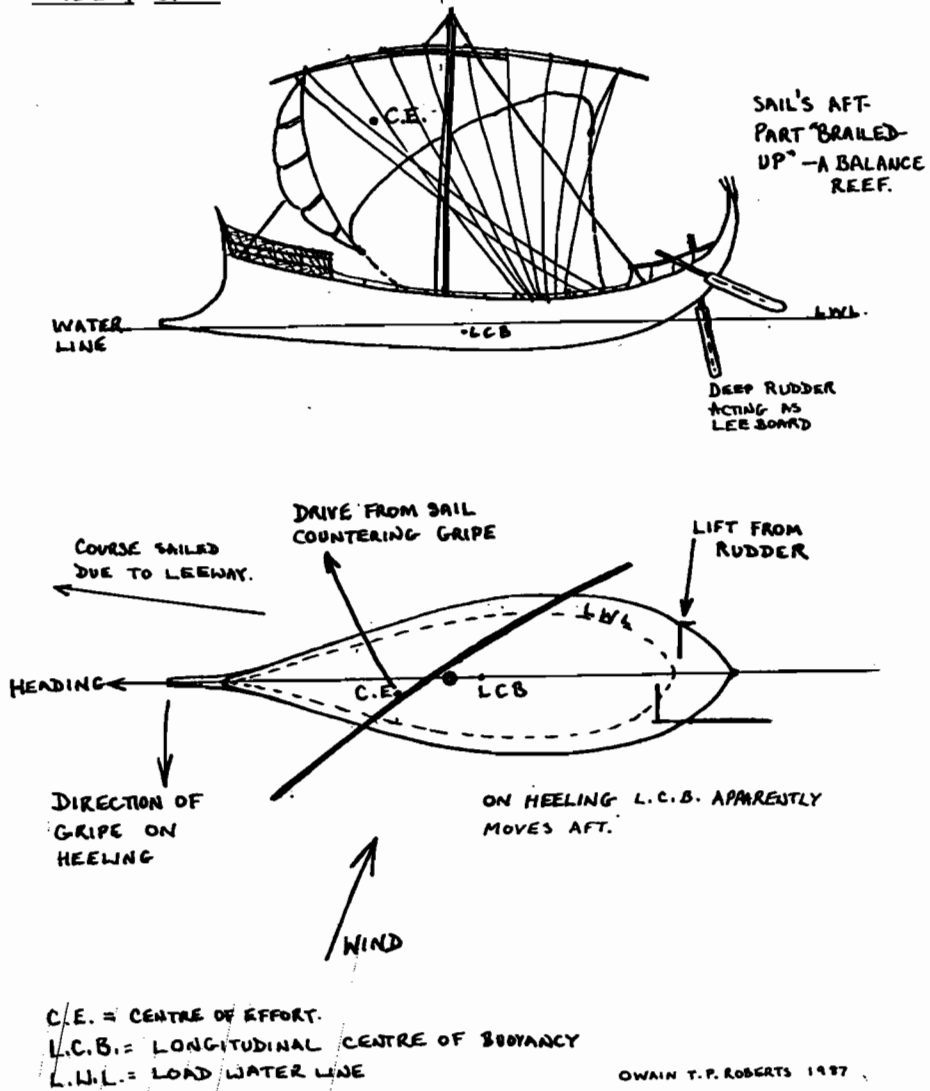 C.E.
SAIL'S AFT-
PART "BRAILED-
UP" - A BALANCE
REEF.
WATER
LINE
LCB
LWL.
DEEP RUDDER
ACTING AS
LEEBOARD
DRIVE FROM SAIL
COUNTERING GRIPE
LIFT FROM
RUDDER
COURSE SAILED
DUE TO LEEWAY.
LWL
HEADING
C.E.
LCB
DIRECTION OF
GRIPE ON
HEELING
ON HEELING L.C.B. APPARENTLY
MOVES AFT.
WIND
C.E. = CENTRE OF EFFORT.
L.C.B. = LONGITUDINAL CENTRE OF BUOYANCY
L.W.L. = LOAD WATER LINE
OWAIN T.P. ROBERTS 1987